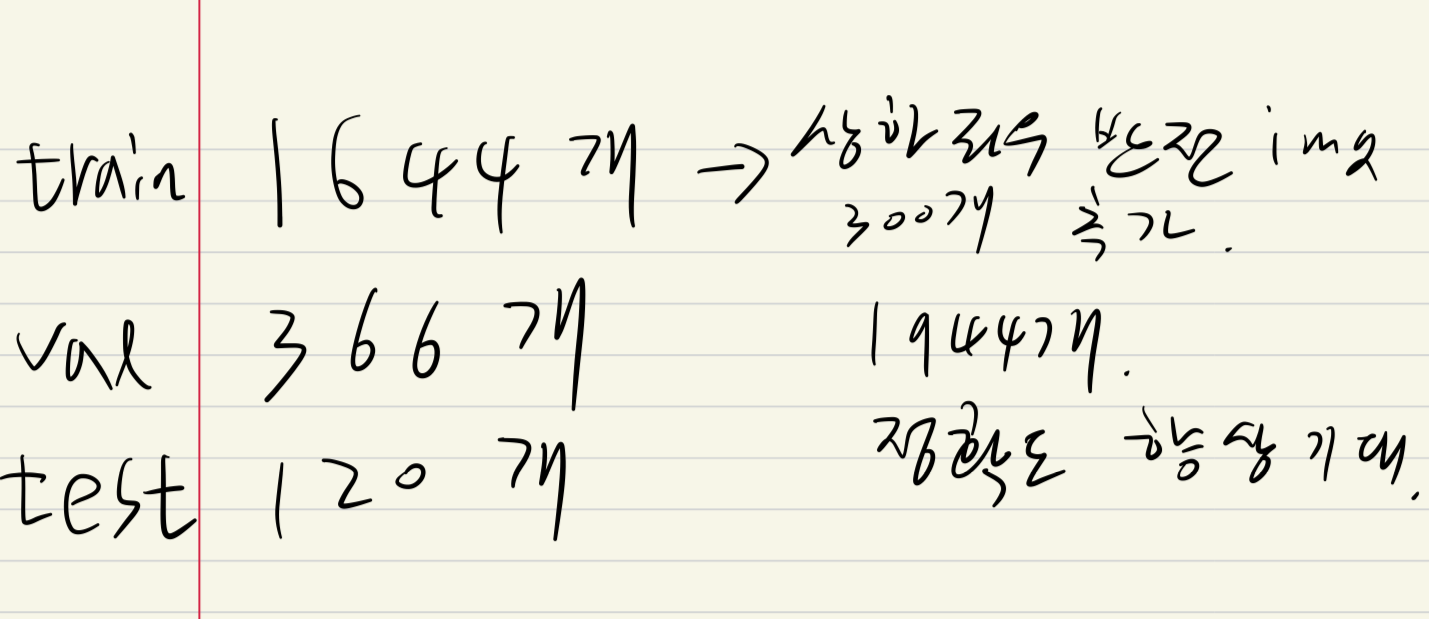 train 1644개 → 상하좌우 반전 img
300개 추가.
val 366개 1944개.
test 120개 정확도 향상 기대.